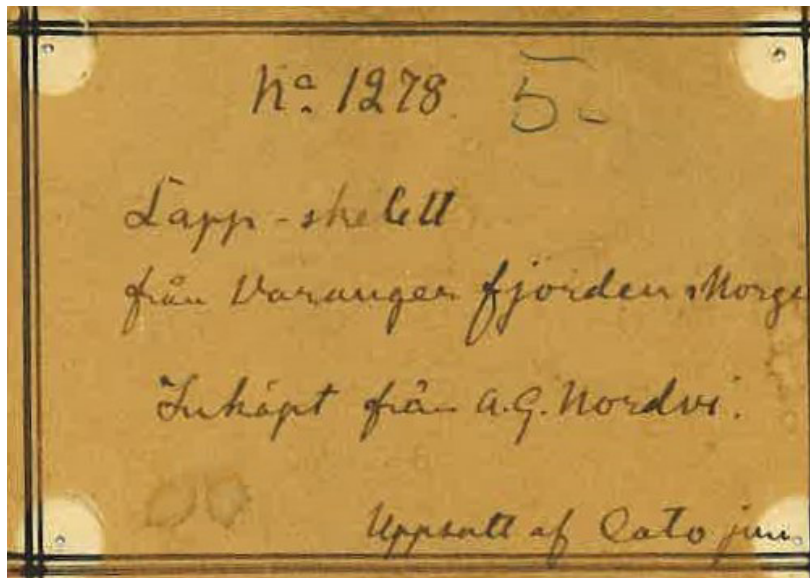 No. 1278. 5-
Lapp-skelett
från Varanger fjorden Norge
Inköpt från A.G. Nordvi.
Uppsatt af Cato jun.